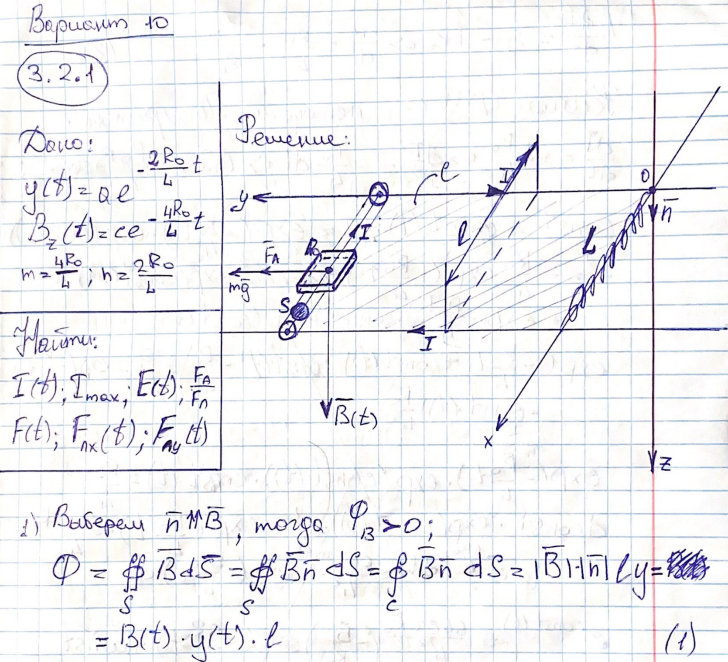 Вариант 10
3.2.1
Дано:
y(t) = a e^{-\frac{2R_0}{L}t}
B_z(t) = ce^{-\frac{4R_0}{L}t}
m = \frac{4R_0}{L}; n = \frac{2R_0}{L}
Найти:
I(t); I_{max}; E(t); \frac{F_A}{F_Л}
F(t); F_{Лx}(t); F_{Лy}(t)
Решение:
y
ℓ
I
O
n̄
I
ℓ
L
R_0
F̄_A
mḡ
S
I
B̄(t)
x
z
1) Выберем n̄ ⇈ B̄, тогда Φ_B > 0;
Φ = ∯_S B̄ dS̄ = ∯_S B̄ n̄ dS = ∮_c B̄ n̄ dS = |B̄|·|n̄| ℓ y =
= B(t) · y(t) · ℓ (1)